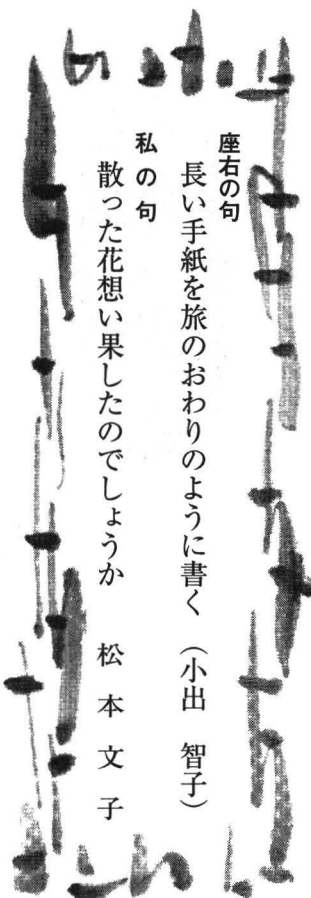 座右の句
長い手紙を旅のおわりのように書く （小出　智子）
私の句
散った花想い果したのでしょうか　松本文子